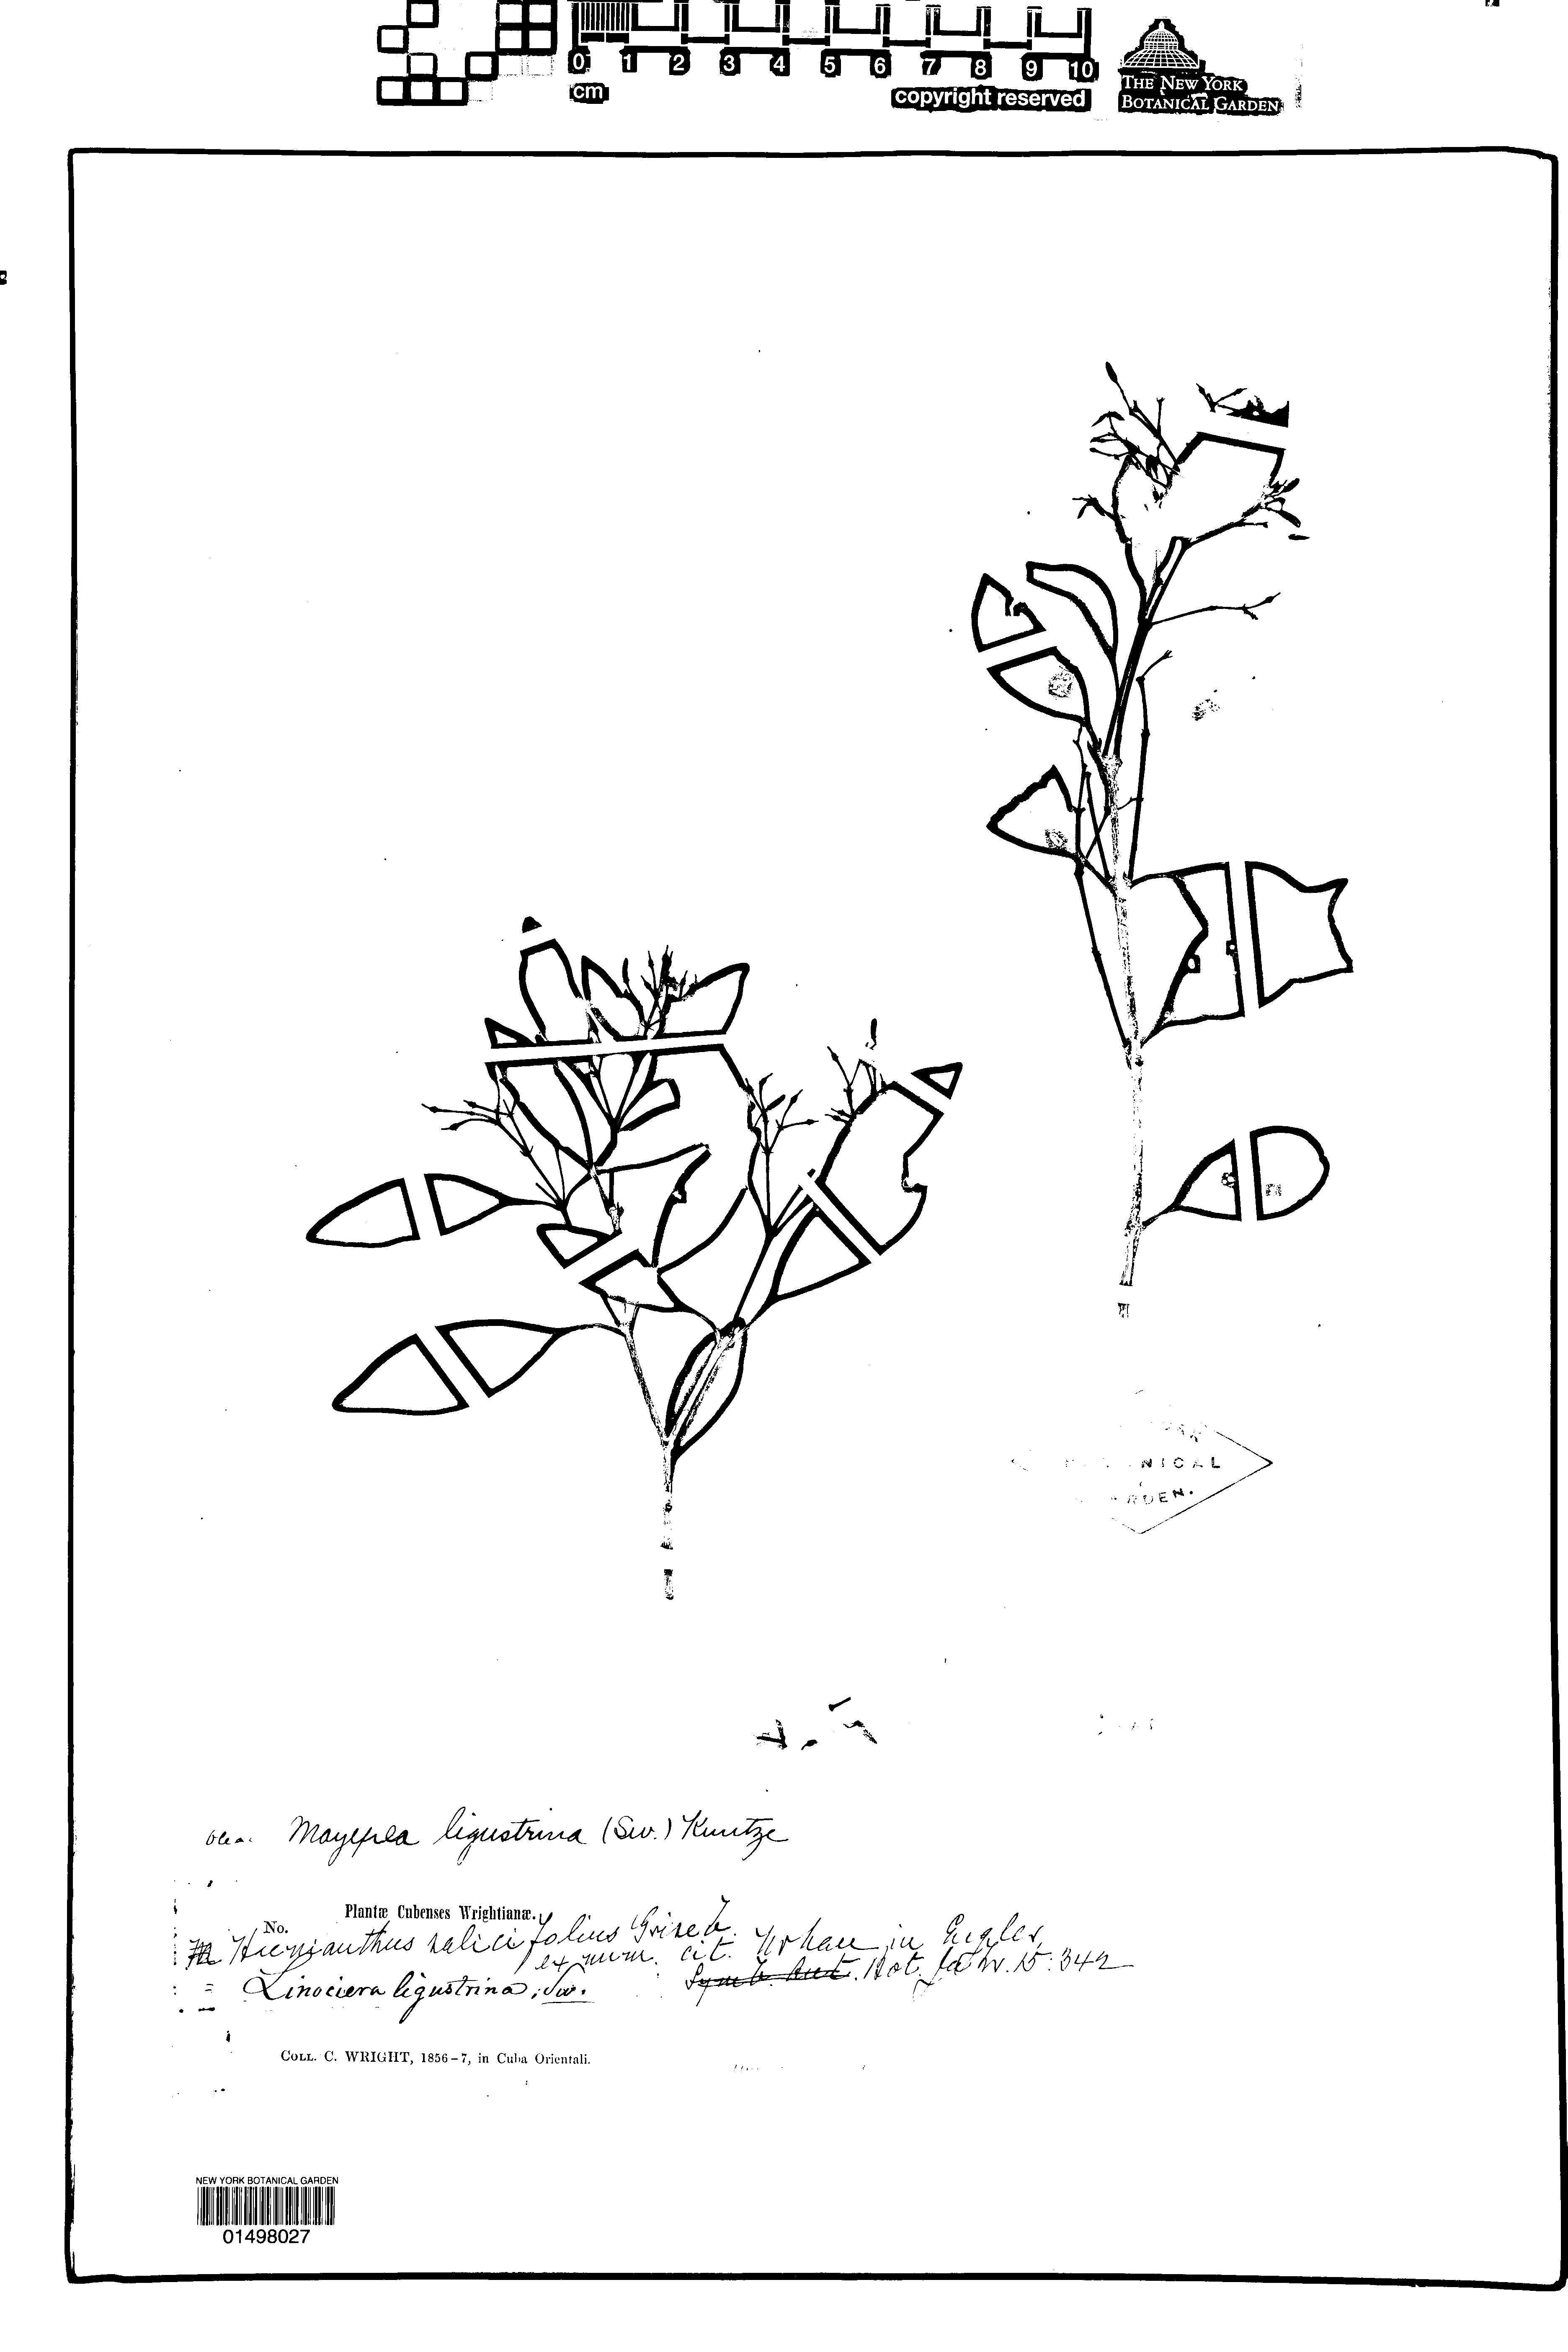 0 1 2 3 4 5 6 7 8 9 10
cm
copyright reserved
THE NEW YORK
BOTANICAL GARDEN
NICAL
RDEN.
Olea. Mayepea ligustrina (Sw.) Kuntze
Plantæ Cubenses Wrightianæ.
No.
Haenianthus salicifolius Griseb.
ex num. cit. Urban in Engler,
Symb. Ant. Bot. Jahr. 15: 342
= Linociera ligustrina, Sw.
COLL. C. WRIGHT, 1856–7, in Cuba Orientali.
NEW YORK BOTANICAL GARDEN
01498027